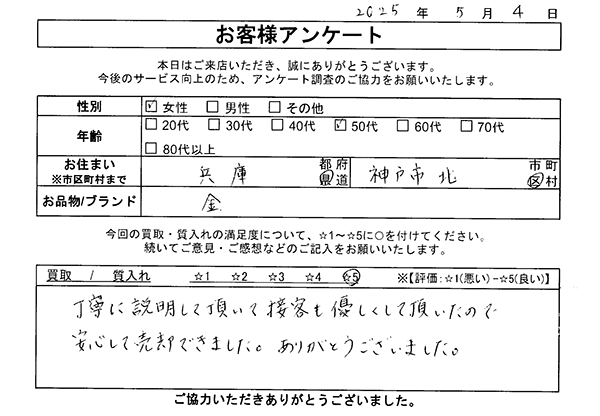 2025 年 5 月 4 日
お客様アンケート
本日はご来店いただき、誠にありがとうございます。
今後のサービス向上のため、アンケート調査のご協力をお願いいたします。
性別 ☑ 女性 □ 男性 □ その他
年齢 □ 20代 □ 30代 □ 40代 ☑ 50代 □ 60代 □ 70代
□ 80代以上
お住まい ※市区町村まで 兵庫 都 府 県 道 神戸市 北 市 町 区 村
お品物/ブランド 金
今回の買取・質入れの満足度について、☆1～☆5に○を付けてください。
続いてご意見・ご感想などのご記入をお願いいたします。
買取 / 質入れ ☆1 ☆2 ☆3 ☆4 ☆5 ※【評価：☆1(悪い)－☆5(良い)】
丁寧に説明して頂いて接客も優しくして頂いたので
安心して売却できました。ありがとうございました。
ご協力いただきありがとうございました。